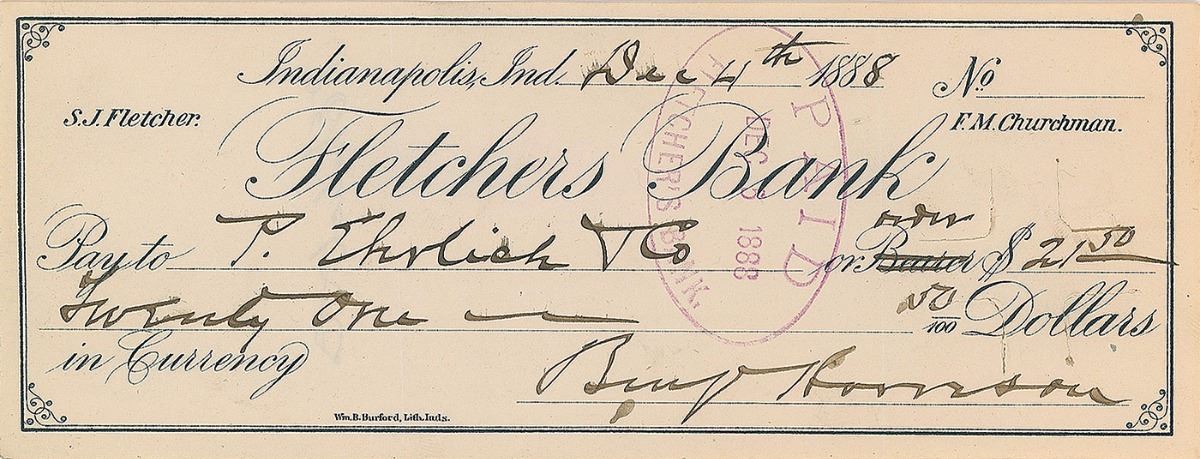 Indianapolis, Ind. Dec 4th 1888 No
S.J. Fletcher. F.M. Churchman.
Fletchers Bank
Pay to P. Ehrlich & Co or Bearer order $ 21 50
Twenty One 50/100 Dollars
in Currency
Benj Harrison
Wm. B. Burford, Lith. Inds.
PAID
DEC 1888
FLETCHER'S BANK.